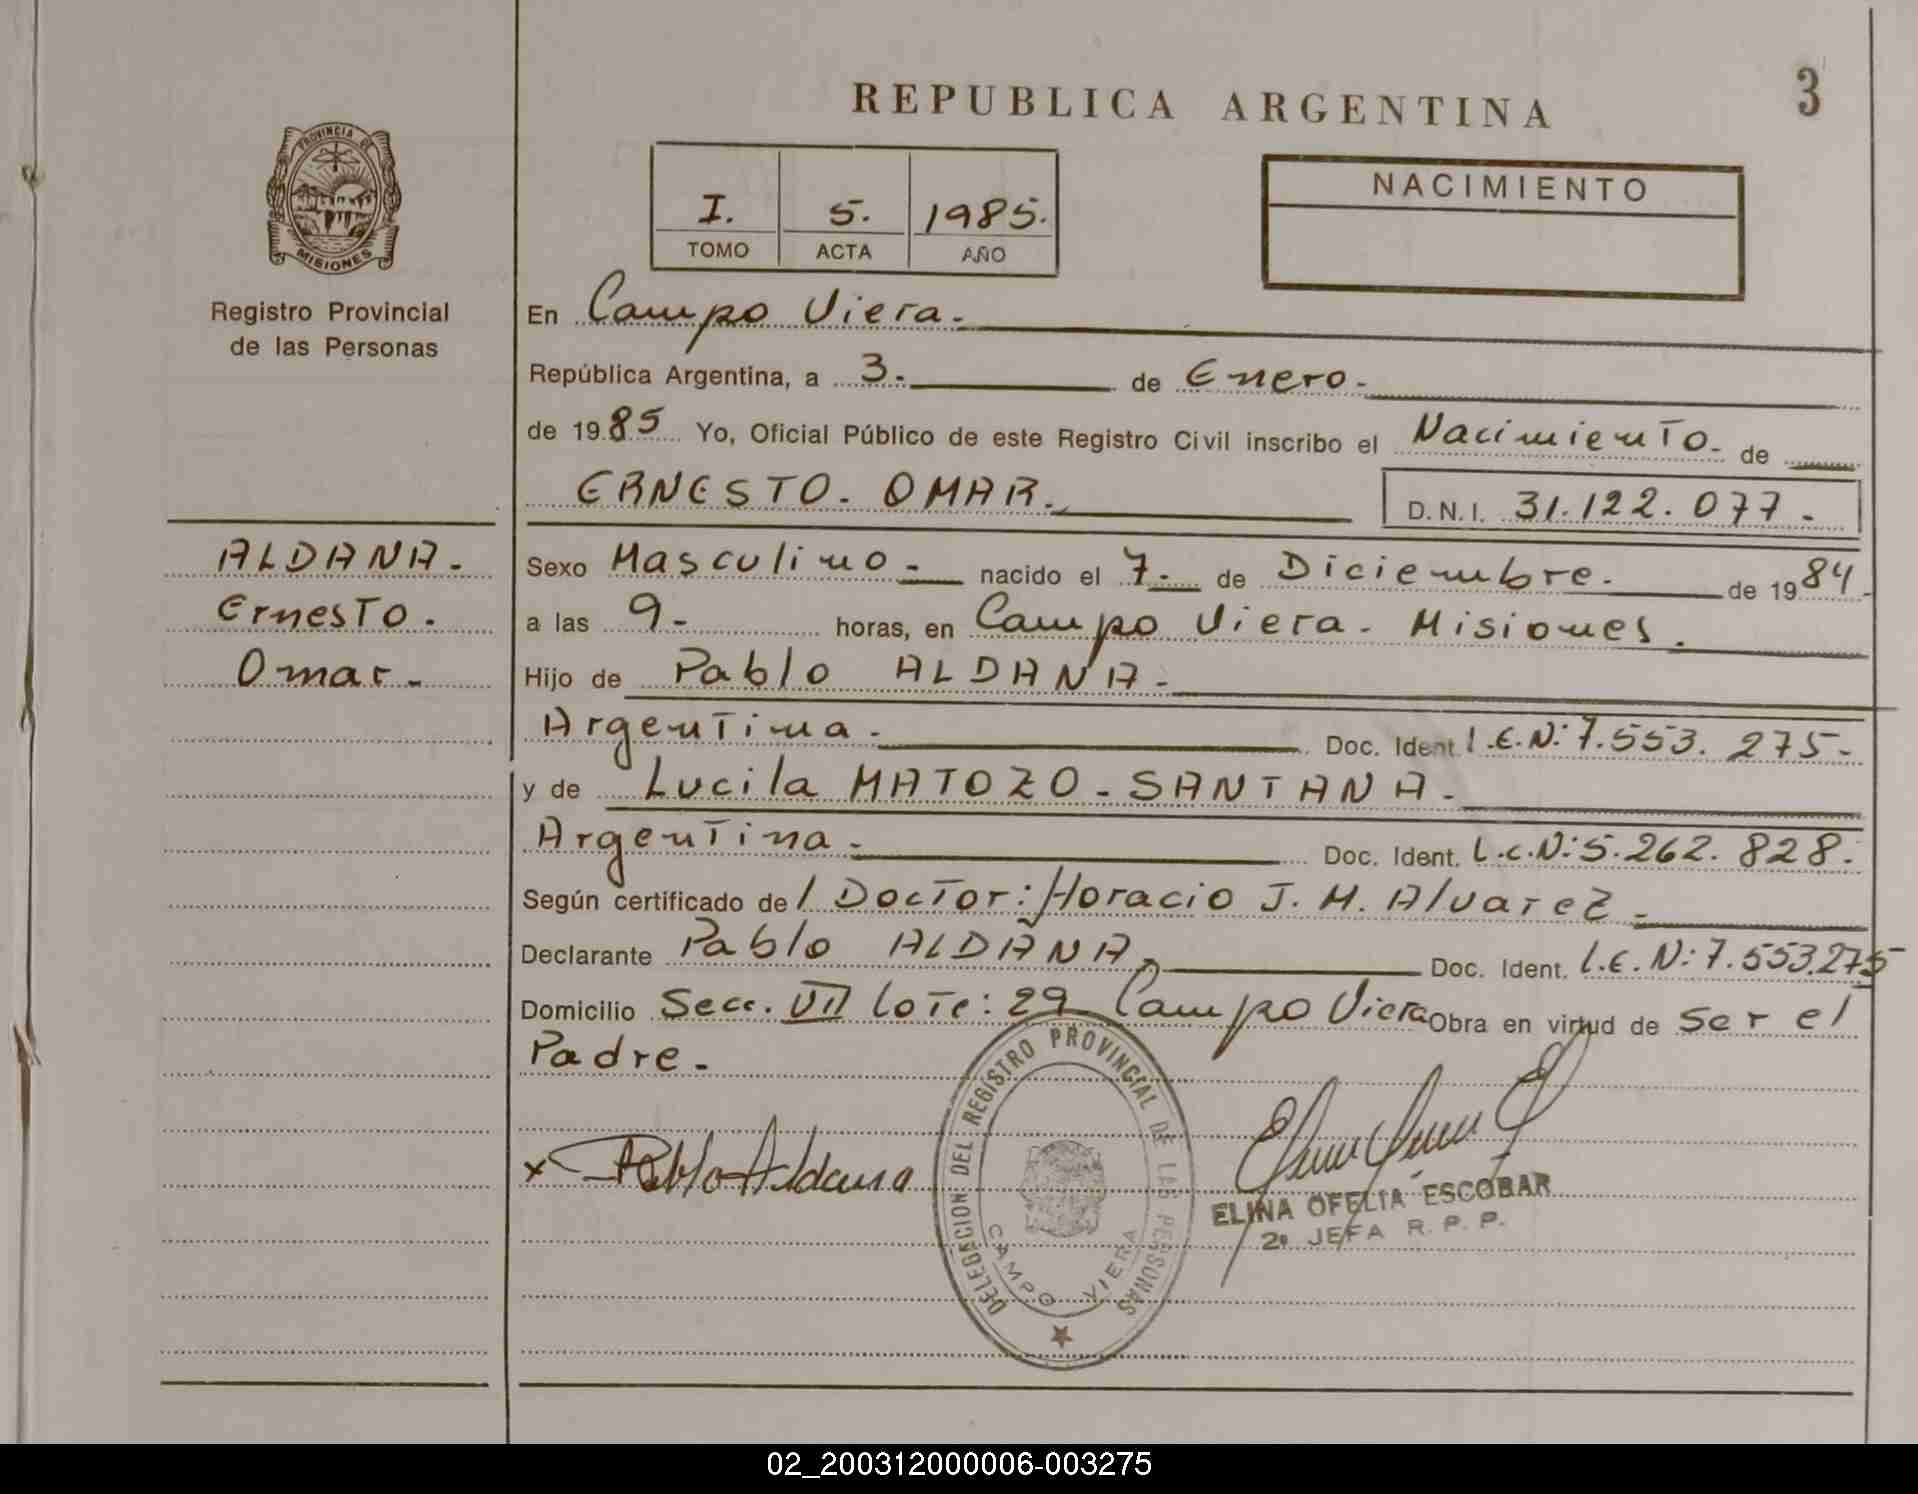 REPUBLICA ARGENTINA
3
PROVINCIA DE
MISIONES
Registro Provincial
de las Personas
I. 5. 1985.
TOMO ACTA AÑO
NACIMIENTO
En Campo Viera.
República Argentina, a 3. de Enero.
de 1985 Yo, Oficial Público de este Registro Civil inscribo el Nacimiento. de
ERNESTO. OMAR. D.N.I. 31.122.077.
ALDANA.
Ernesto.
Omar.
Sexo Masculino. nacido el 7. de Diciembre. de 1984.
a las 9. horas, en Campo Viera. Misiones.
Hijo de Pablo ALDANA.
Argentina. Doc. Ident. l.E.N: 7.553.275.
y de Lucila MATOZO. SANTANA.
Argentina. Doc. Ident. L.C.N: 5.262.828.
Según certificado de l Doctor: Horacio J. M. Alvarez.
Declarante Pablo ALDANA. Doc. Ident. l.E.N: 7.553.275
Domicilio Secc. VII lote: 29 Campo Viera Obra en virtud de ser el
Padre.
x Pablo Aldana
DELEGACION DEL REGISTRO PROVINCIAL DE LAS PERSONAS
CAMPO VIERA
ELINA OFELIA ESCOBAR
2a JEFA R. P. P.
02_200312000006-003275